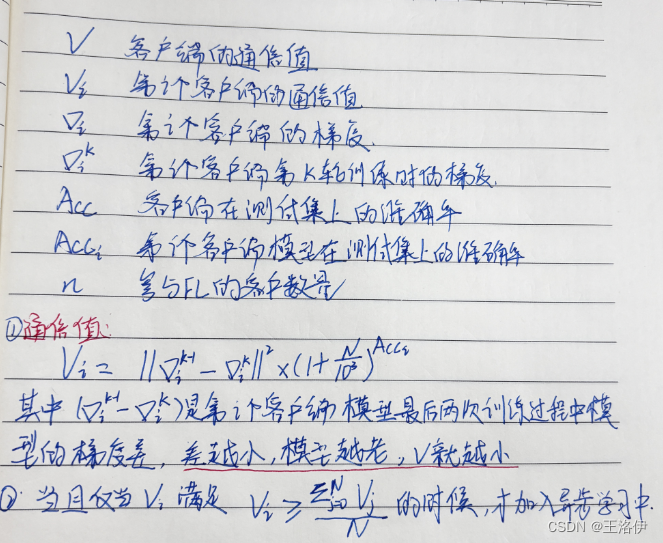 V 客户端的通信值
Vi 第i个客户端的通信值
∇i 第i个客户端的梯度.
∇i^k 第i个客户端第K轮训练时的梯度.
Acc 客户端在测试集上的准确率
Acci 第i个客户端模型在测试集上的准确率
n 参与FL的客户数量
①通信值:
Vi = ||∇i^{k-1} - ∇i^k||² × (1+N/10³)^{Acci}
其中 (∇i^{k-1} - ∇i^k)是第i个客户端模型最后两次训练过程中模
型的梯度差, 差越小, 模型越老, V就越小
② 当且仅当 Vi 满足 Vi ≥ Σ^N Vj / N 的时候, 才加入异步学习中.
CSDN @王洛伊